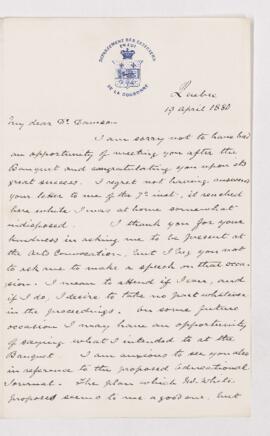 DEPARTEMENT DES OFFICIERS
EN LOI
DE LA COURONNE
Quebec
19 April 1880
My dear Dr. Dawson
I am sorry not to have had
an opportunity of meeting you after the
Banquet and congratulating you upon its
great success. I regret not having answered
your letter to me of the 7th inst. it reached
here while I was at home somewhat
indisposed. I thank you for your
kindness in asking me to be present at
the Arts Convocation, but I beg you not
to ask me to make a speech on that occa-
sion. I mean to attend if I can, and
if I do, I desire to take no part whatever
in the proceedings. On some future
occasion I may have an opportunity
of saying what I intended to at the
Banquet. I am anxious to see you also
in reference to the proposed Educational
Journal. The plan which Mr. White
proposed seems to me a good one, but